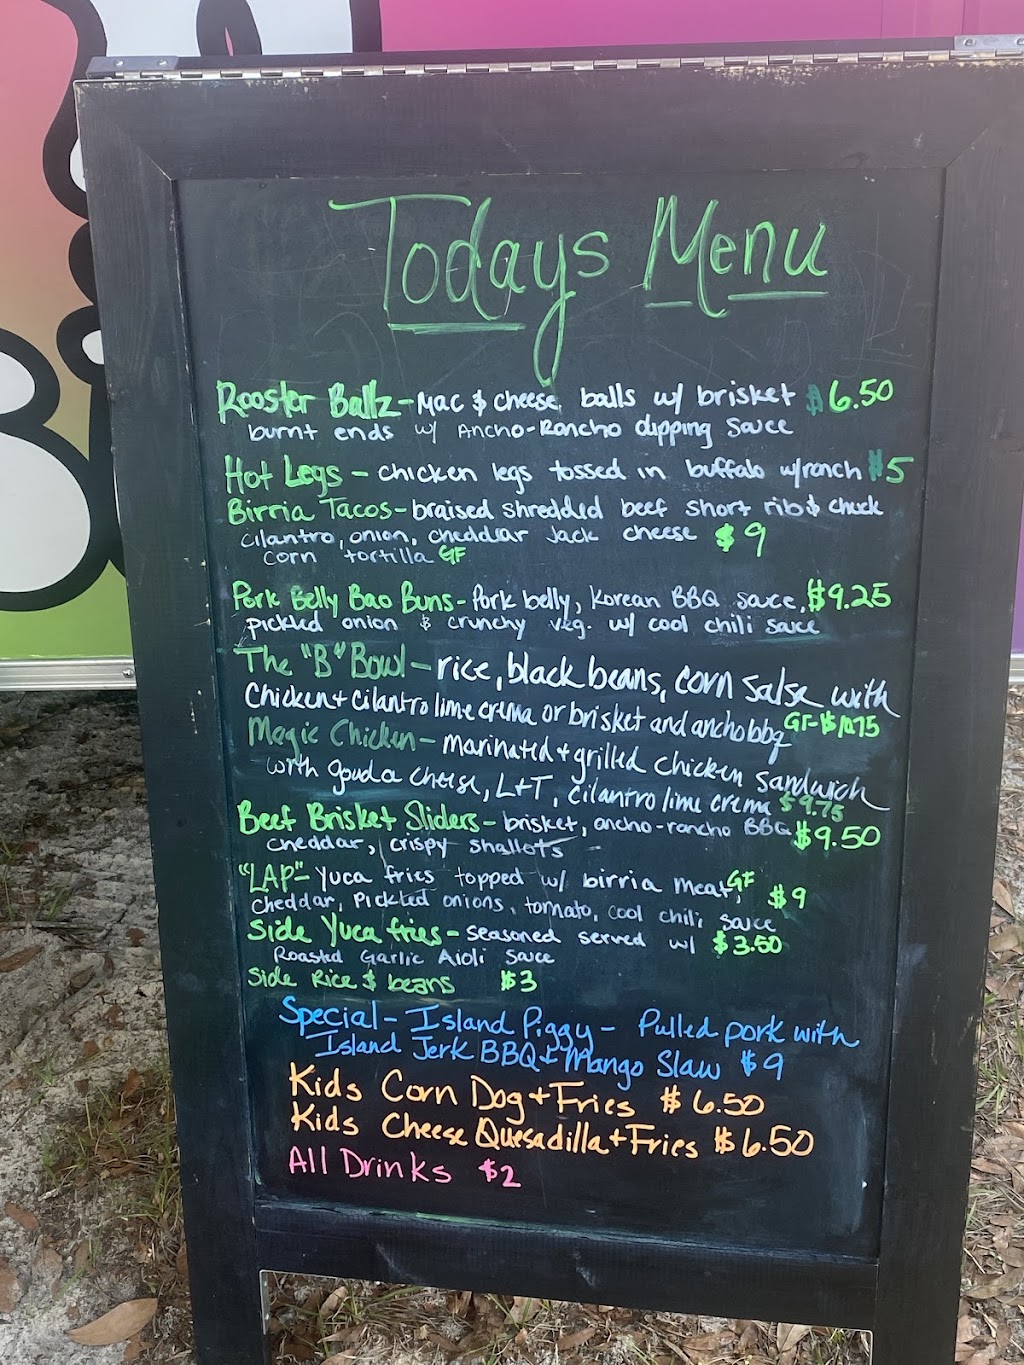 Todays Menu
Rooster Ballz - Mac & cheese balls w/ brisket $6.50
burnt ends w/ Ancho-Rancho dipping sauce
Hot Legs - chicken legs tossed in buffalo w/ranch $5
Birria Tacos - braised shredded beef short rib & chuck
cilantro, onion, cheddar jack cheese $9
corn tortilla GF
Pork Belly Bao Buns - Pork belly, Korean BBQ sauce, $9.25
pickled onion & crunchy veg. w/ cool chili sauce
The "B" Bowl - rice, black beans, corn salsa with
Chicken + cilantro lime crema or brisket and ancho bbq GF-$10.75
Magic Chicken - marinated + grilled chicken sandwich
with gouda cheese, L+T, cilantro lime crema $9.75
Beef Brisket Sliders - brisket, ancho-rancho BBQ $9.50
cheddar, crispy shallots
"LAP" - Yuca fries topped w/ birria meat, GF $9
cheddar, Pickled onions, tomato, cool chili sauce
Side Yuca fries - seasoned served w/ $3.50
Roasted Garlic Aioli Sauce
Side Rice & beans $3
Special - Island Piggy - Pulled pork with
Island Jerk BBQ + Mango Slaw $9
Kids Corn Dog + Fries $6.50
Kids Cheese Quesadilla + Fries $6.50
All Drinks $2